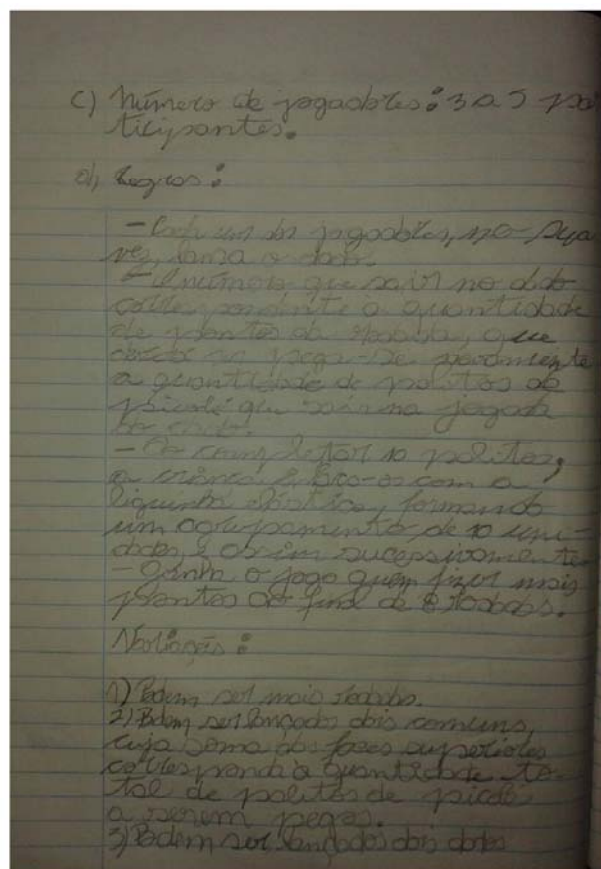 c) Número de jogadores: 3 a 5 par
ticipantes.
d) Regras:
- Cada um dos jogadores, na sua
vez, lança o dado.
- O número que sair no dado
corresponderá à quantidade
de pontos da rodada, que
pega-se novamente
a quantidade de palitos de
picolé que sair na jogada
- Ao completar 10 palitos,
a criança
liguinha elástica, formando
um agrupamento de 10 uni-
dades, e assim sucessivamente
- Ganha o jogo quem fizer mais
pontos ao final de 8 rodadas.
Variações:
1) Podem ser mais rodadas.
2) Podem ser lançados dois comuns,
cuja soma das faces superiores
corresponda à quantidade to-
tal de palitos de picolé
a serem pegos.
3) Podem ser lançados dois dados